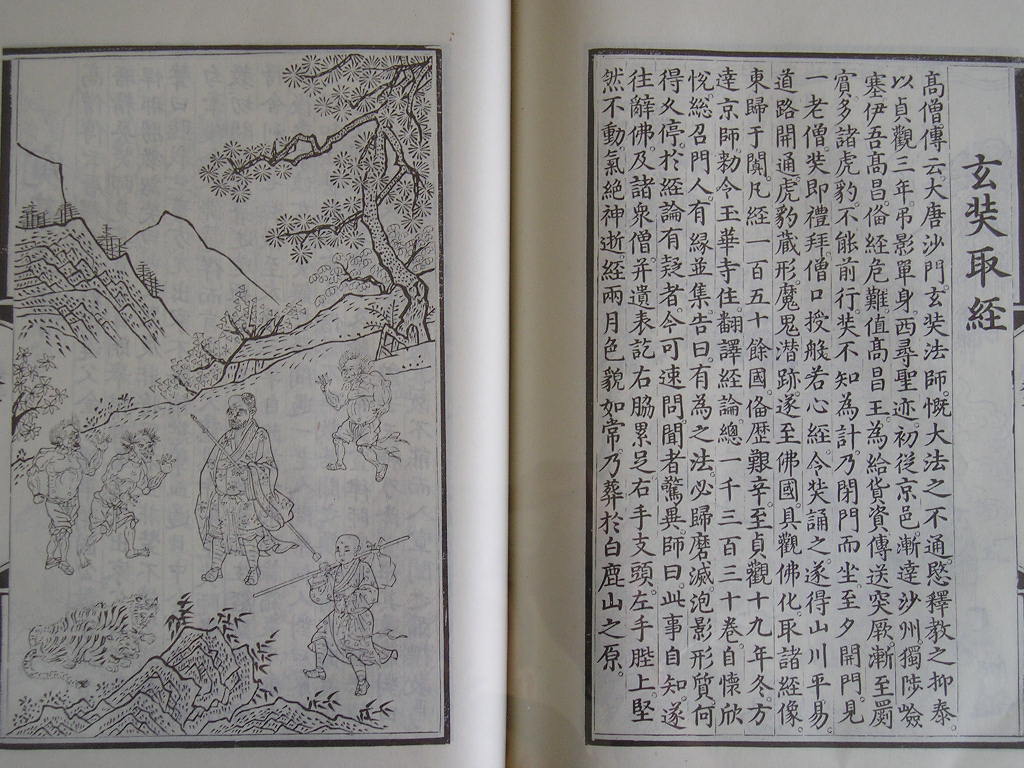 玄奘取經
高僧傳云。大唐沙門。玄奘法師。慨大法之不通。愍釋教之抑泰。
以貞觀三年。弔影單身。西尋聖迹。初從京邑。漸達沙州。獨陟嶮
塞。伊吾高昌。俻經危難。值高昌王。為給貨資。傳送突厥。漸至罽
賓。多諸虎豹。不能前行。奘不知為計。乃閉門而坐。至夕開門。見
一老僧。奘即禮拜。僧口授般若心經。令奘誦之。遂得山川平易。
道路開通。虎豹藏形。魔鬼潛跡。遂至佛國。具觀佛化。取諸經像。
東歸于闐。凡經一百五十餘國。俻歷艱辛。至貞觀十九年冬。方
達京師。勅令玉華寺住。翻譯經論。總一千三百三十卷。自懷欣
悅。總召門人。有緣並集。告曰。有為之法。必歸磨滅。泡影形質。何
得久停。於經論有疑者。今可速問。聞者驚異。師曰。此事自知。遂
往辭佛。及諸衆僧。并遺表訖。右脇累足。右手支頭。左手䏶上。堅
然不動。氣絕神逝。經兩月。色貌如常。乃葬於白鹿山之原。